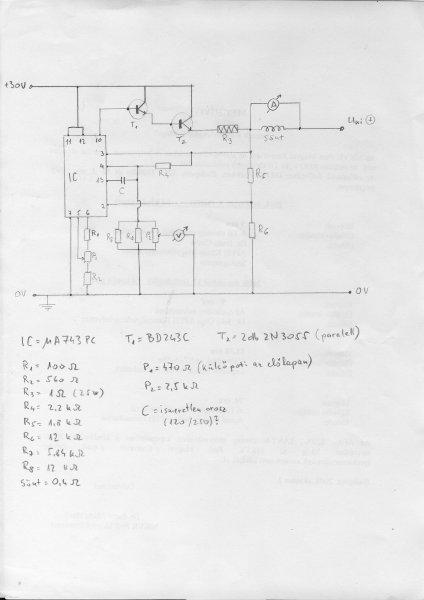 +30V
T1
T2
R3
A
Sönt
Uki +
11
12
10
IC
3
4
13
2
C
R4
R5
R6
7
5
6
R1
P1
R2
R7
R8
P2
V
0V
0V
IC = µA743PC
T1 = BD243C
T2 = 2db 2N3055 (paralell)
R1 = 100 Ω
R2 = 560 Ω
R3 = 1Ω (25W)
R4 = 2,2 kΩ
R5 = 1,8 kΩ
R6 = 12 kΩ
R7 = 5,84 kΩ
R8 = 12 kΩ
Sönt = 0,4 Ω
P1 = 470 Ω (külső poti az előlapon)
P2 = 2,5 kΩ
C = ismeretlen orosz
(120/250)?